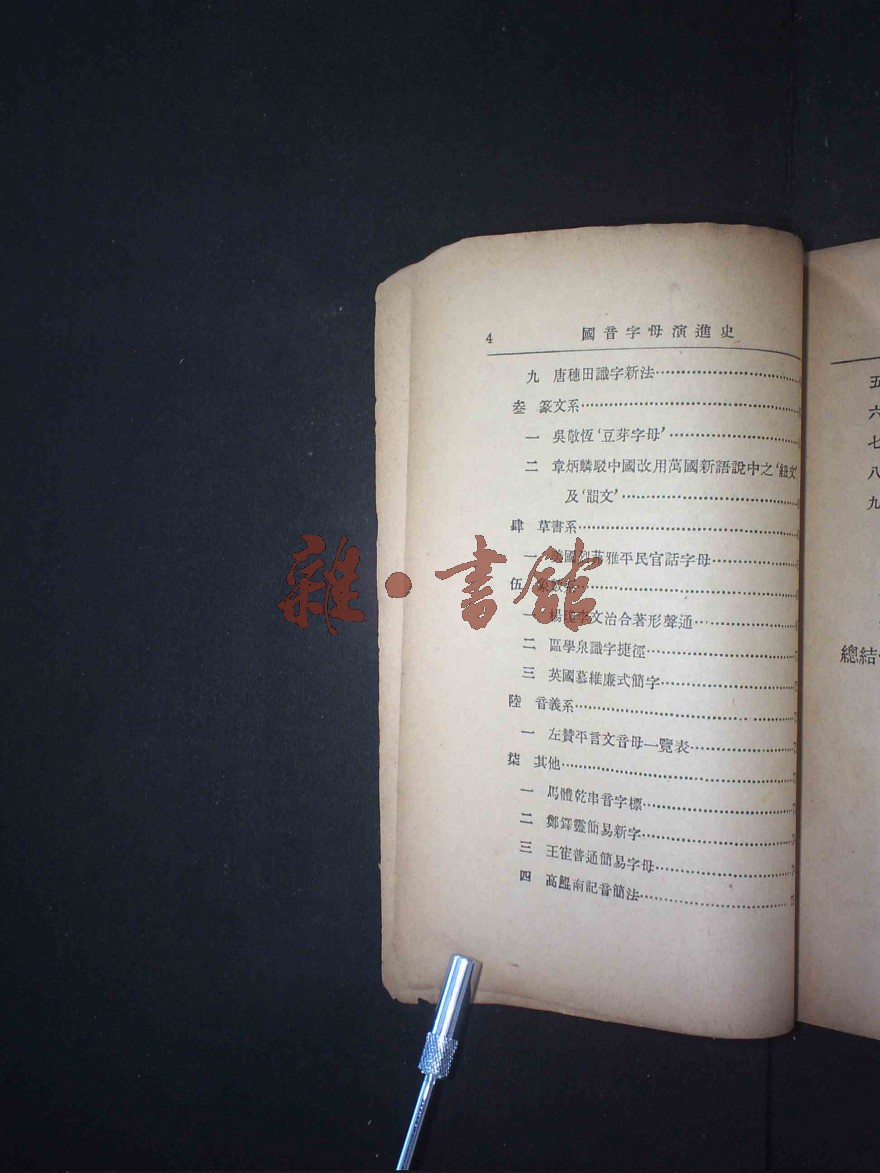 4 國音字母演進史
九 唐穗田識字新法
叁 篆文系
一 吳敬恆‘豆芽字母’
二 章炳麟駁中國改用萬國新語說中之‘紐文’
及‘韻文’
肆 草書系
一 美國 雅平民官話字母
伍
一 楊 李文治合著形聲通
二 區學泉識字捷徑
三 英國慕維廉式簡字
陸 音義系
一 左贊平言文音母一覽表
柒 其他
一 馬體乾串音字標
二 鄭鐸靈簡易新字
三 王崔普通簡易字母
四 高鯤南記音簡法
五
六
七
八
九
總結
雜·書館